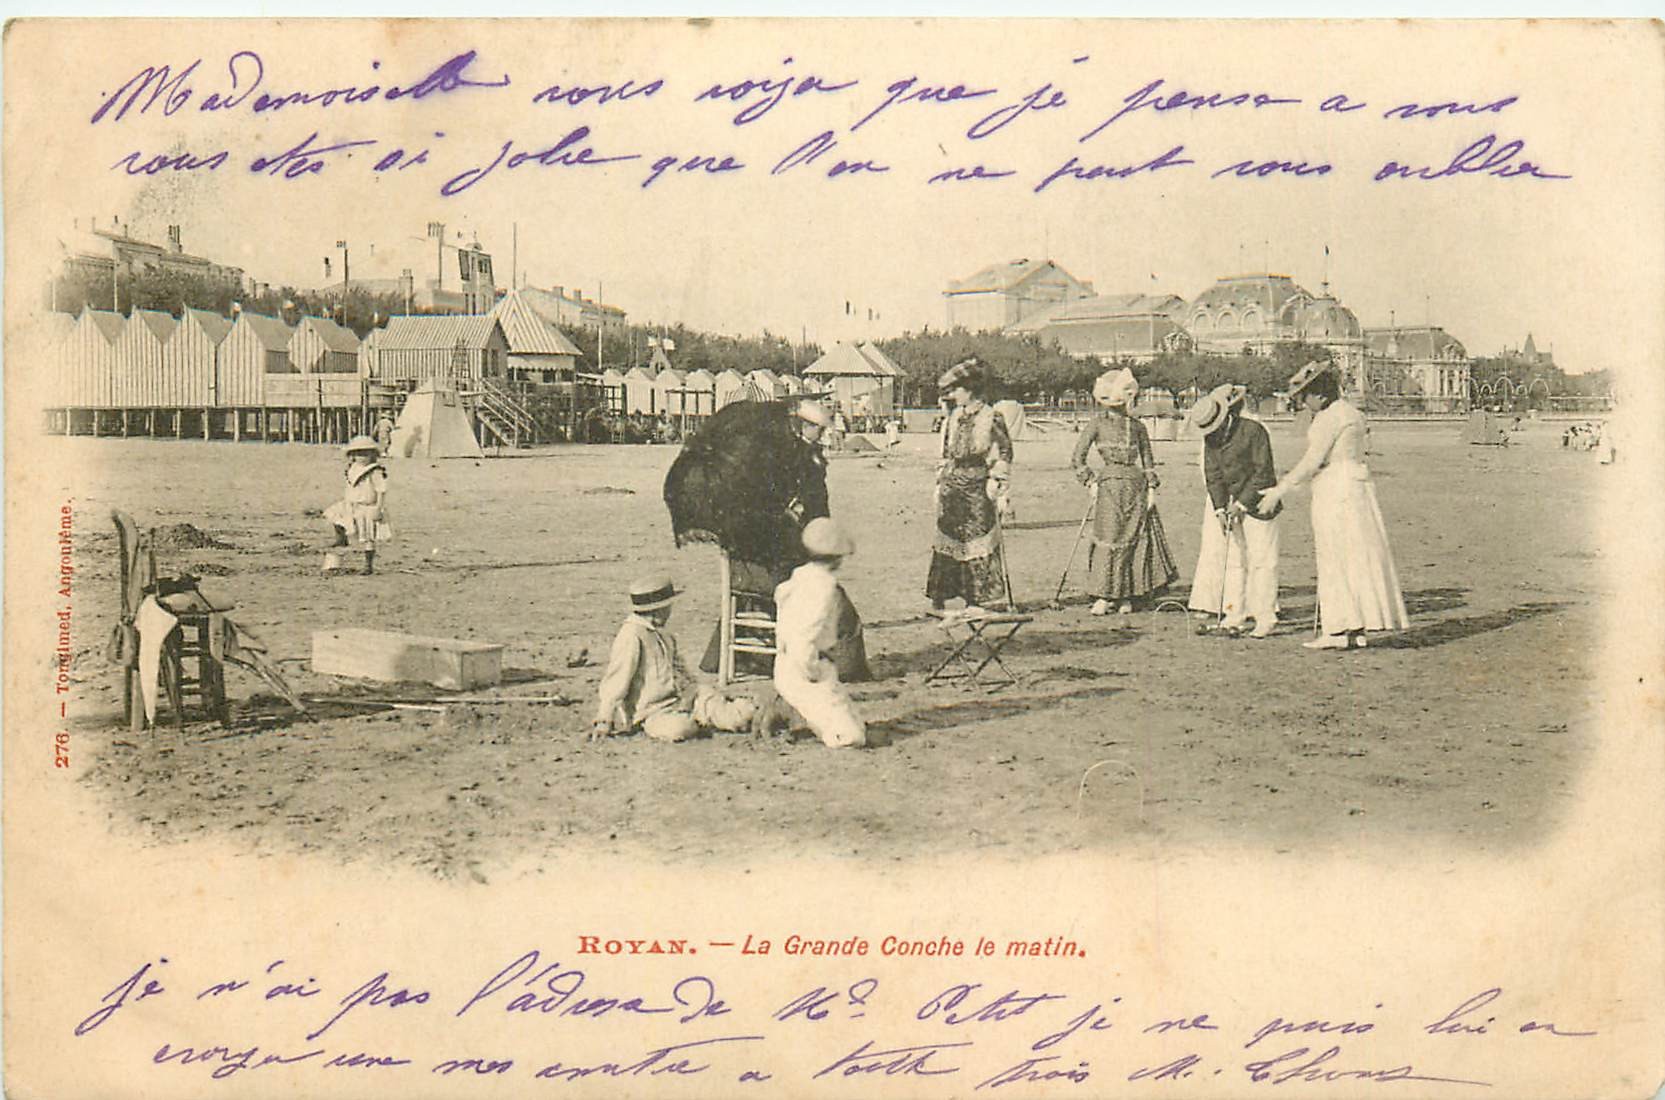 Mademoiselle vous voiyez que je pense a vous
vous etes si jolie que l'on ne peut vous oublier
276. — Tonglimed, Angoulème.
ROYAN. — La Grande Conche le matin.
je n'ai pas l'adresse de Mr Petit je ne puis lui en
une mes a trois M.